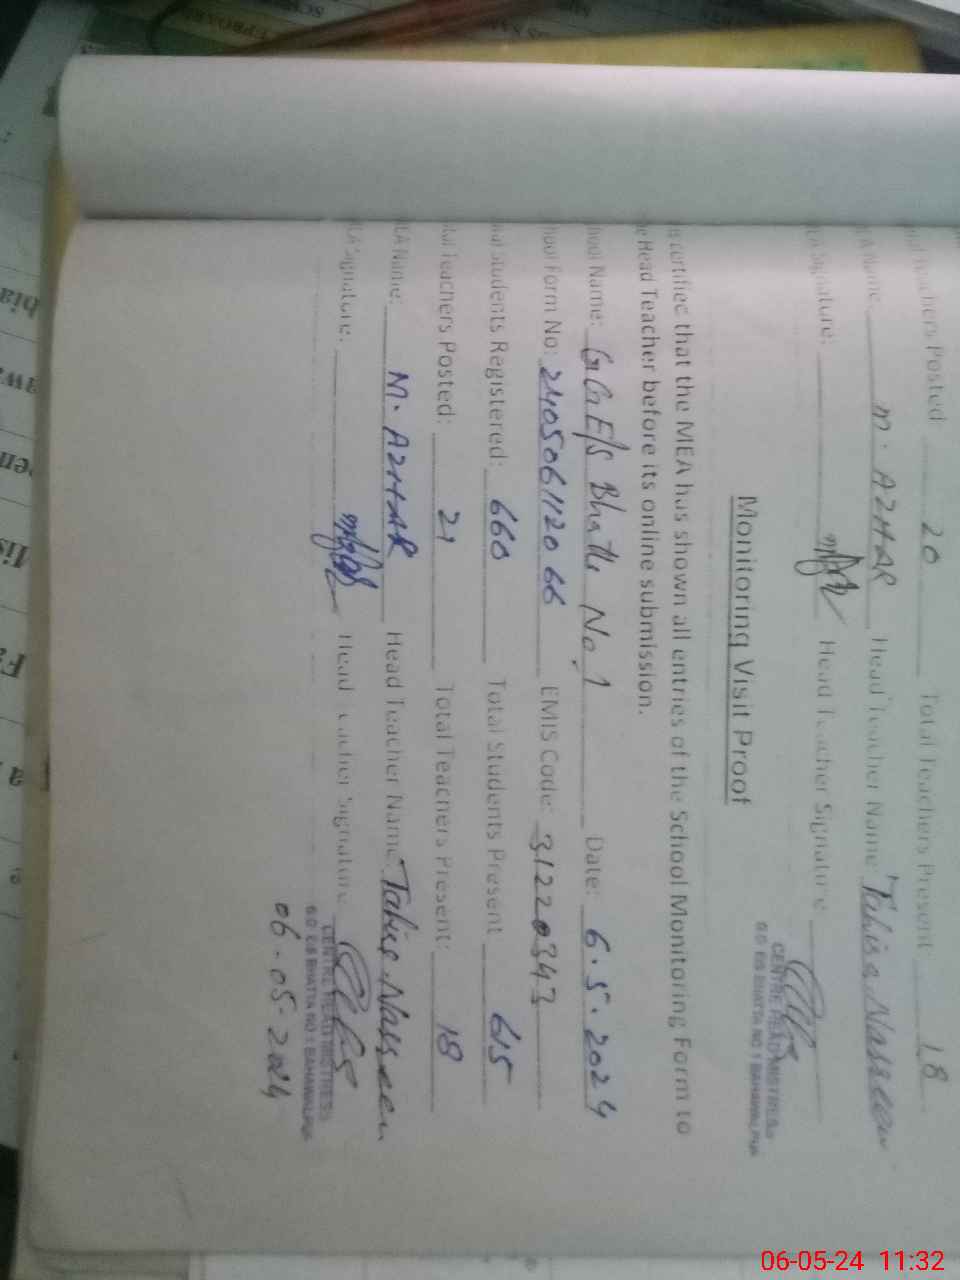 Teachers Posted 20 Total Teachers Present: 18
Name: M. AZHAR Head Teacher Name
Signature: Head Teacher Signature
CENTRE HEADMISTRESS
G.G E/S BHATTA NO 1 BAHAWALPUR
Monitoring Visit Proof
certified that the MEA has shown all entries of the School Monitoring Form to
Head Teacher before its online submission.
Name: GGE/S Bhatta No.1 Date: 6.5.2024
Form No: 2405061120 66 EMIS Code: 31220343
Students Registered: 660 Total Students Present 615
Teachers Posted: 21 Total Teachers Present: 18
Name: M. AZHAR Head Teacher Name
Signature: Head Teacher Signature
CENTRE HEADMISTRESS
G.G E/S BHATTA NO 1 BAHAWALPUR
06-05-2024
06-05-24 11:32